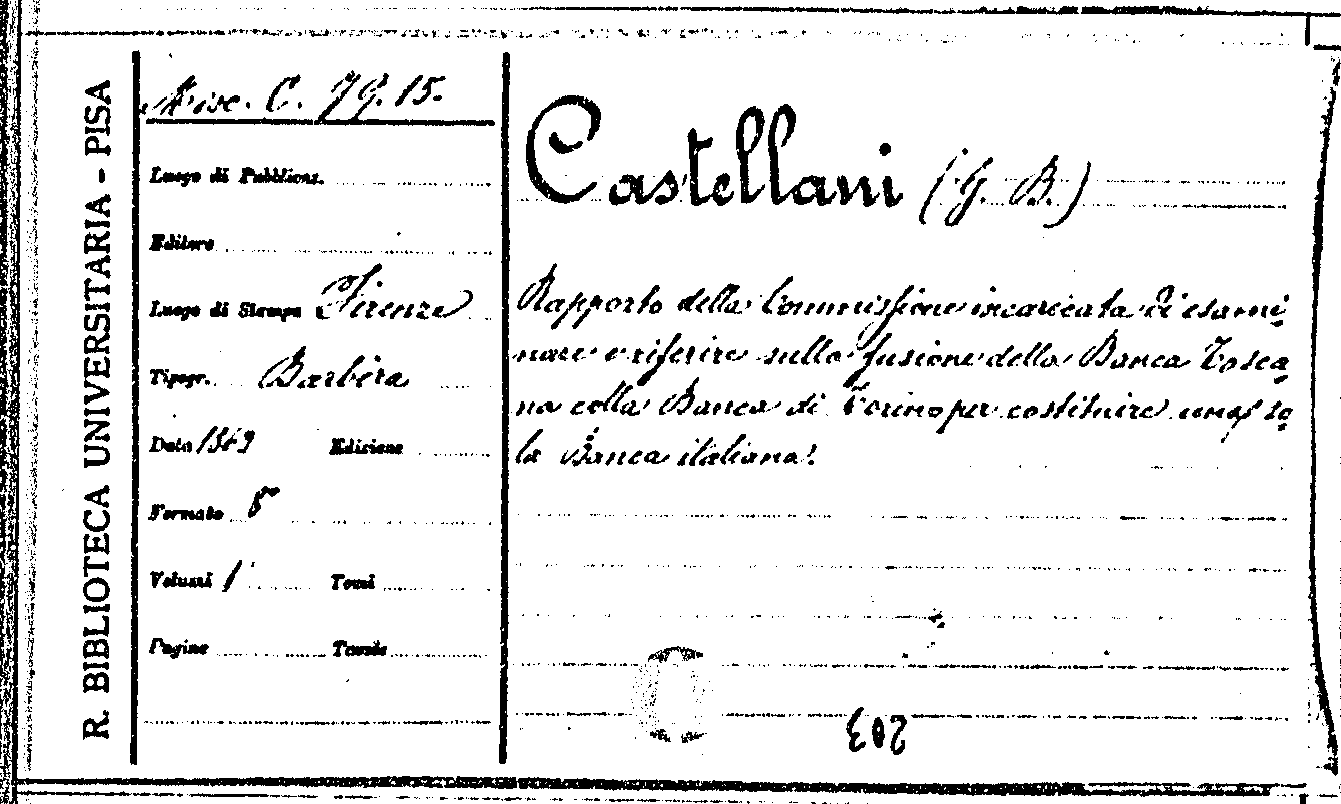 R. BIBLIOTECA UNIVERSITARIA - PISA
Misc. C. 79. 15.
Luogo di Pubblicaz.
Editore
Luogo di Stampa Firenze
Tipogr. Barbèra
Data 1869 Edizione
Formato 8°
Volumi 1 Tomi
Pagine Tavole
Castellani (G. B.)
Rapporto della Commissione incaricata di esami-
nare e riferire sulla fusione della Banca Tosca-
na colla Banca di Torino per costituire una so-
la Banca italiana.
C
203